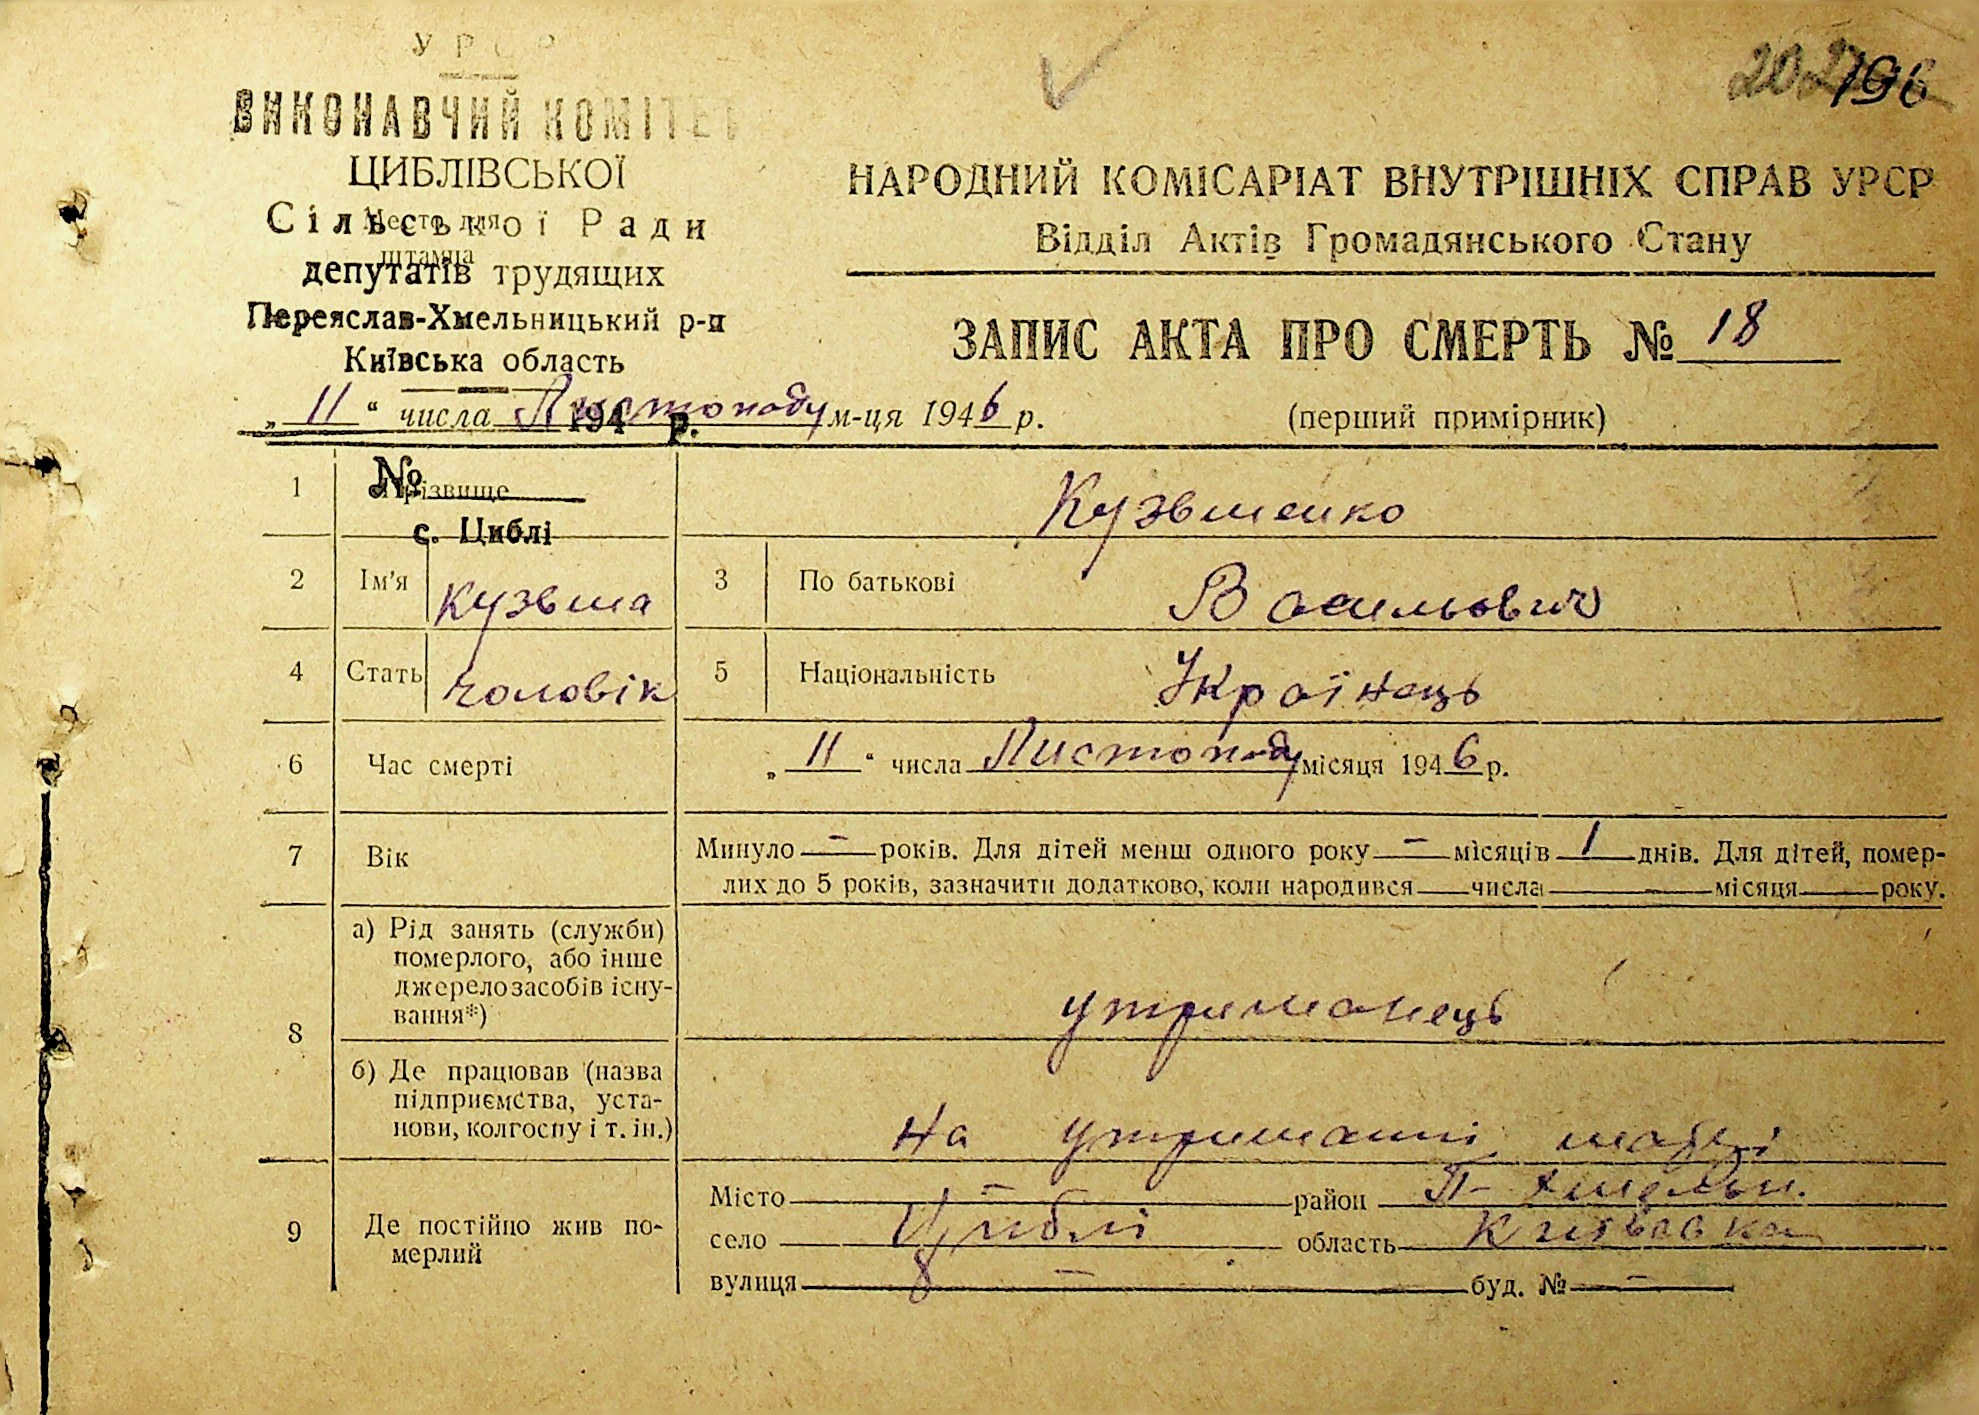 УРСР
ВИКОНАВЧИЙ КОМІТЕТ
ЦИБЛІВСЬКОЇ
Сільської Ради
Место для
штампа
депутатів трудящих
Переяслав-Хмельницький р-н
Київська область
194 р.
№
с. Циблі
196
НАРОДНИЙ КОМІСАРІАТ ВНУТРІШНІХ СПРАВ УРСР
Відділ Актів Громадянського Стану
ЗАПИС АКТА ПРО СМЕРТЬ № 18
„ 11 “ числа Листопаду м-ця 1946 р.
(перший примірник)
1 Прізвище Кузьменко
2 Ім'я Кузьма 3 По батькові Васильович
4 Стать чоловік 5 Національність Українець
6 Час смерті „ 11 “ числа Листопаду місяця 1946 р.
7 Вік Минуло — років. Для дітей менш одного року — місяців 1 днів. Для дітей, помер-
лих до 5 років, зазначити додатково, коли народився числа місяця року.
8 а) Рід занять (служби)
померлого, або інше
джерело засобів існу-
вання*)
утриманець
б) Де працював (назва
підприємства, уста-
нови, колгоспу і т. ін.)
На утриманні матері
9 Де постійно жив по-
мерлий
Місто — район П-Хмельн.
село Циблі область Київська
вулиця — буд. № —